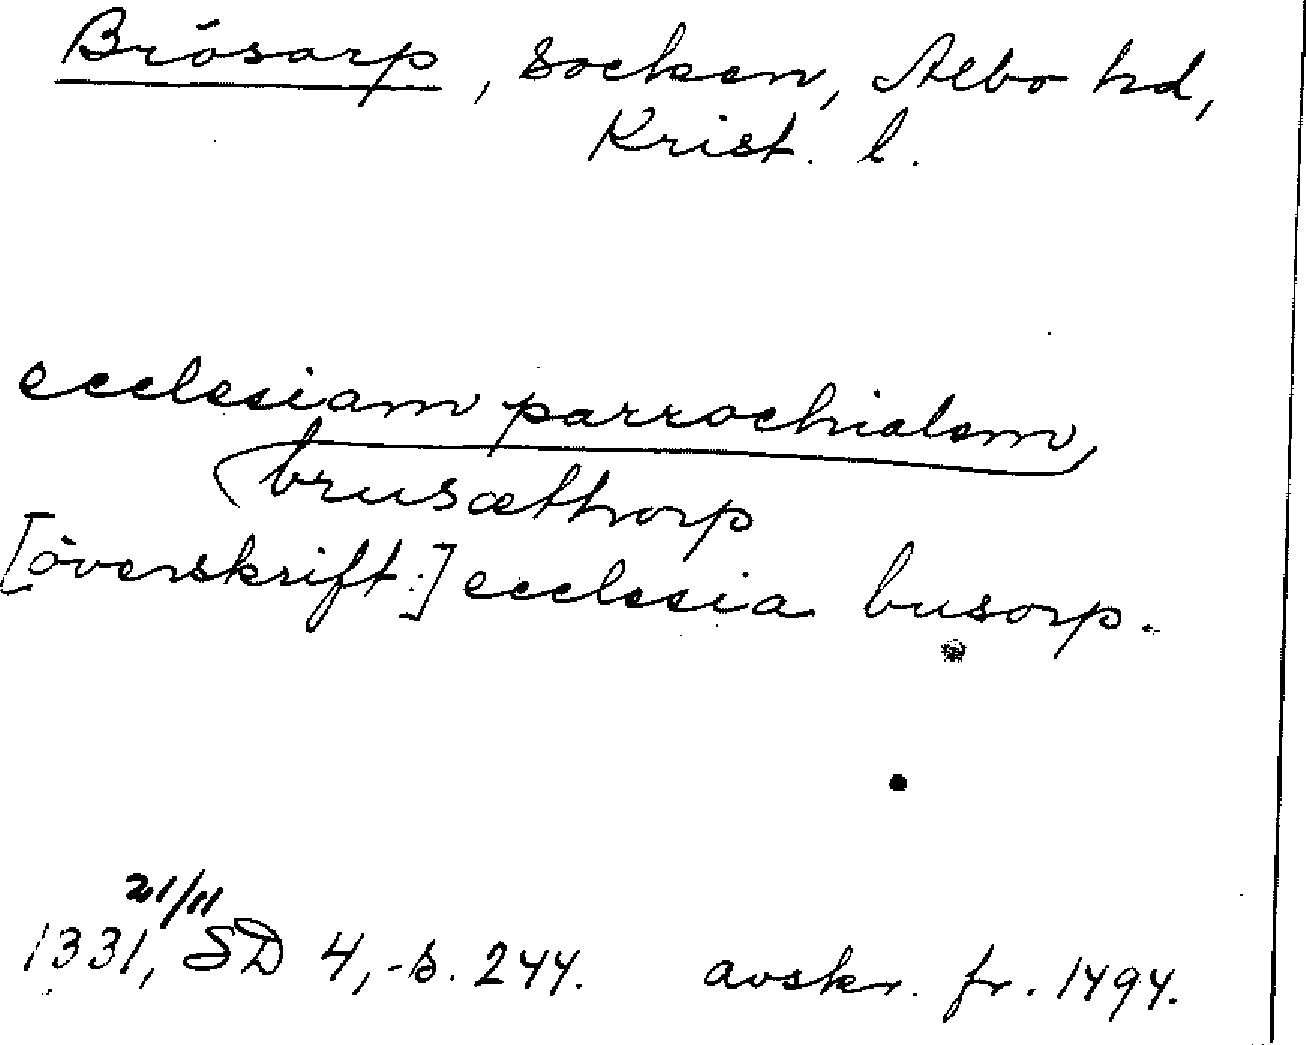 Brösarp, socken, Albo hd,
Krist. l.
ecclesiam parrochialem,
brusæthorp
[överskrift:] ecclesia busorp.
21/11
1331, SD 4, s. 244. avskr. fr. 1494.